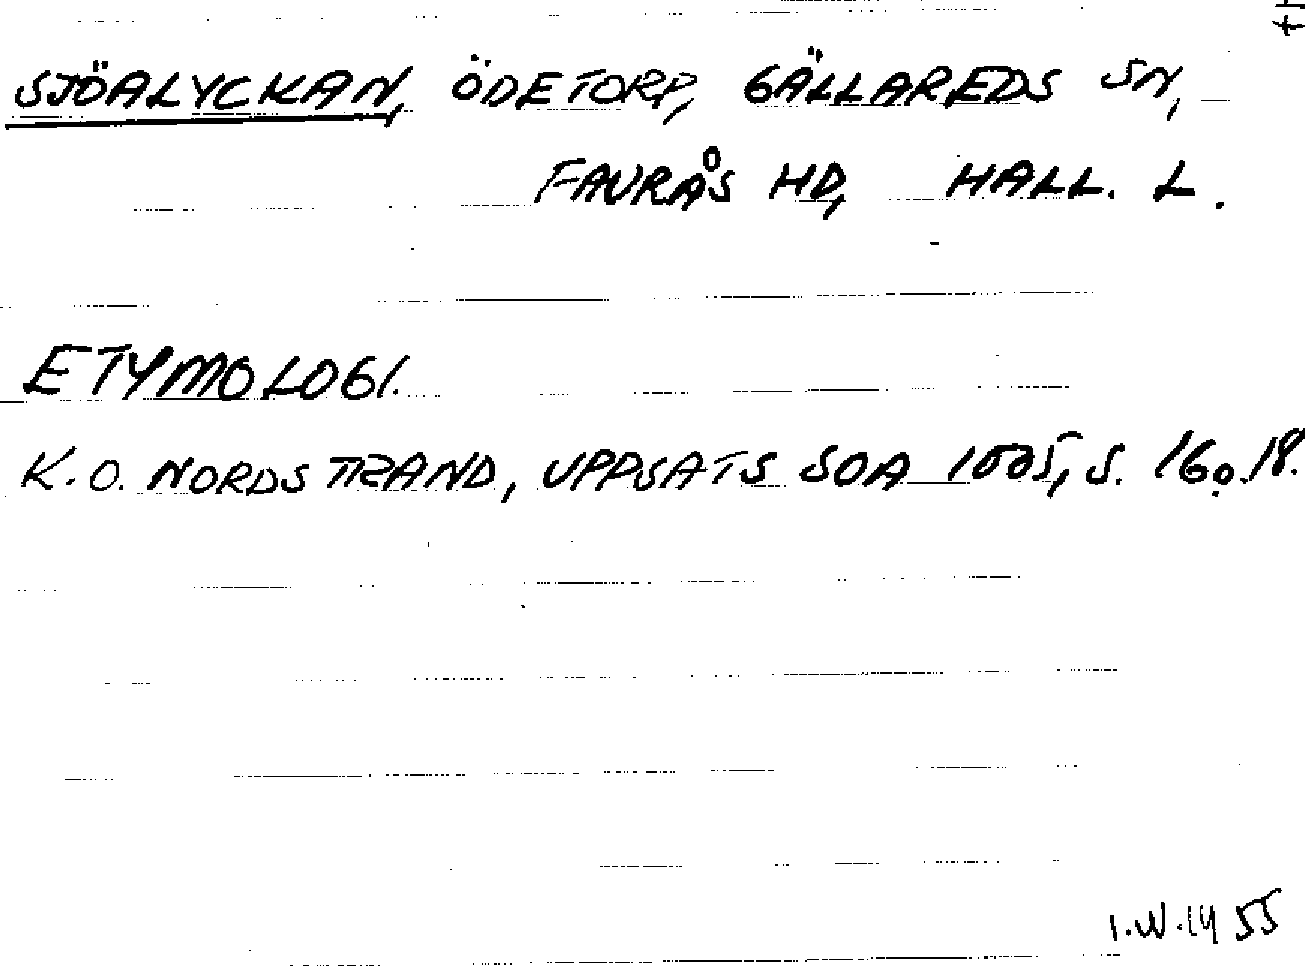 SJÖALYCKAN, ÖDETORP, GÄLLAREDS SN,
FAURÅS HD, HALL. L.
ETYMOLOGI.
K.O. NORDSTRAND, UPPSATS SOA 1005, S. 16 o. 18.
I.W. 1455